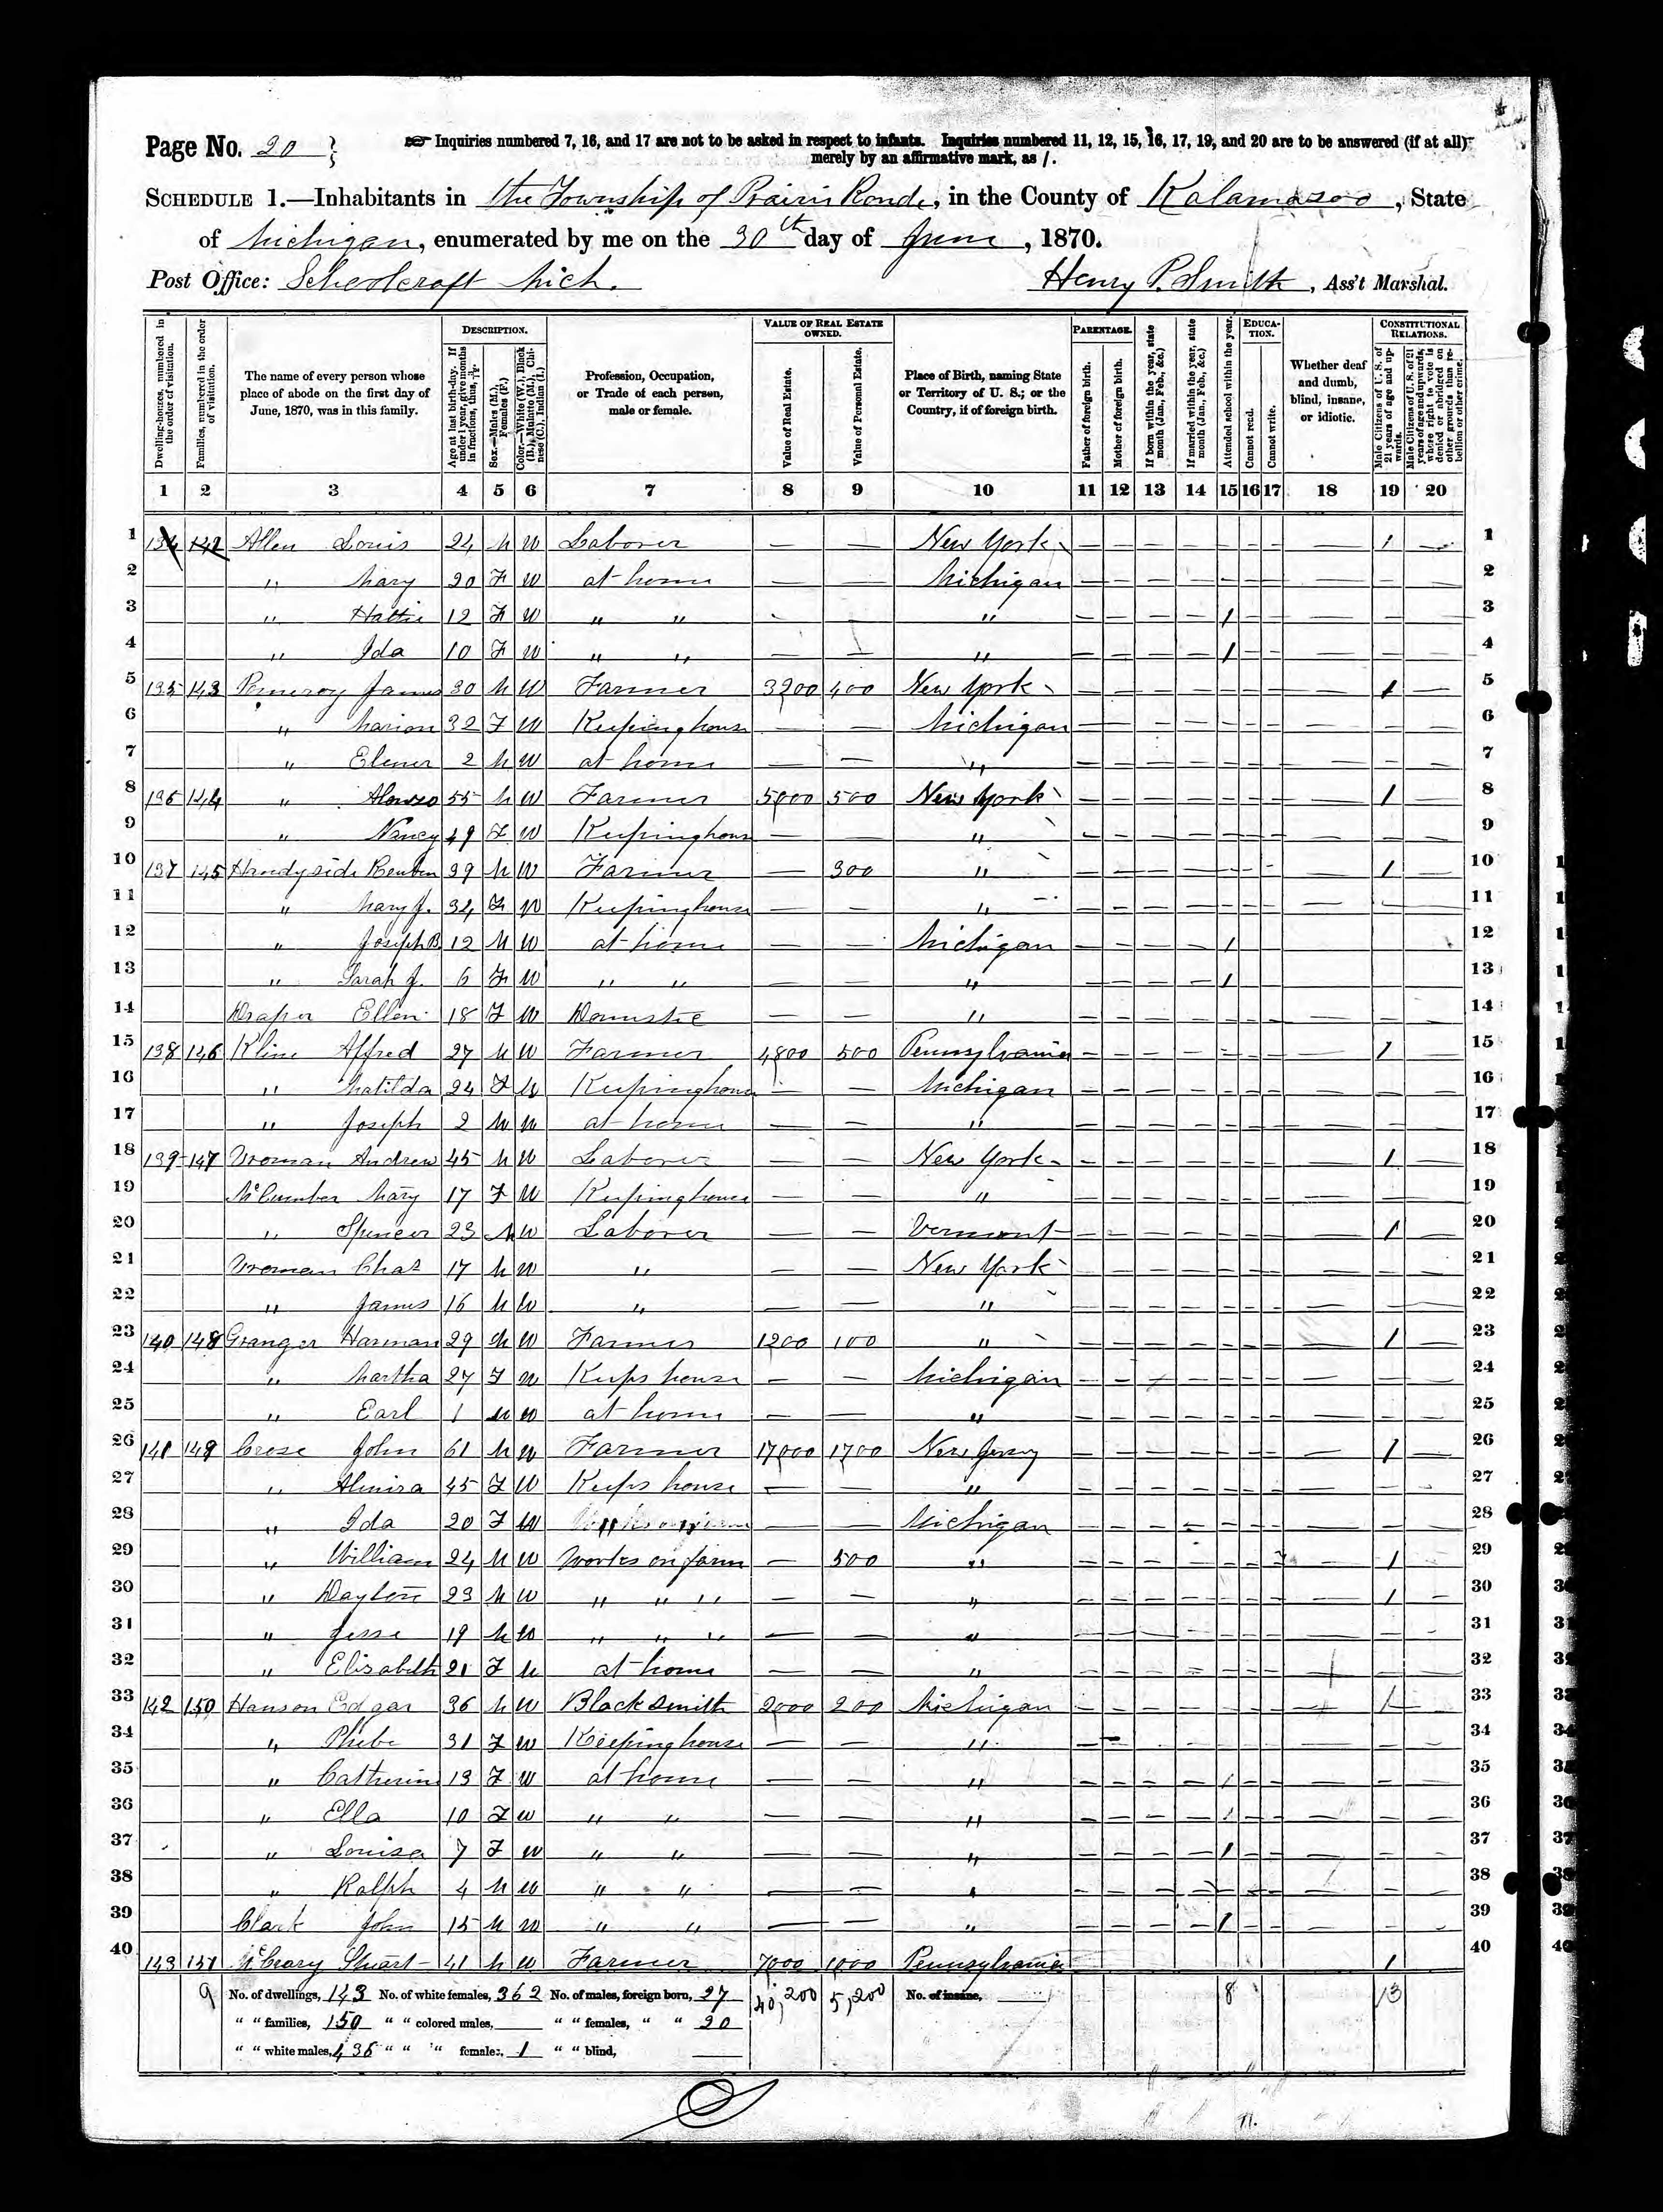 Page No. 20
☞ Inquiries numbered 7, 16, and 17 are not to be asked in respect to infants. Inquiries numbered 11, 12, 15, 16, 17, 19, and 20 are to be answered (if at all)
merely by an affirmative mark, as /.
SCHEDULE 1.—Inhabitants in the Township of Prairie Ronde, in the County of Kalamazoo, State
of Michigan, enumerated by me on the 30th day of June, 1870.
Post Office: Schoolcraft Mich. Henry P. Smith, Ass't Marshal.
Dwelling-houses, numbered in the order of visitation.
Families, numbered in the order of visitation.
The name of every person whose place of abode on the first day of June, 1870, was in this family.
DESCRIPTION.
Age at last birth-day. If under 1 year, give months in fractions, thus, 3/12.
Sex.—Males (M.), Females (F.)
Color.—White (W.), Black (B.), Mulatto (M.), Chinese (C.), Indian (I.)
Profession, Occupation, or Trade of each person, male or female.
VALUE OF REAL ESTATE OWNED.
Value of Real Estate.
Value of Personal Estate.
Place of Birth, naming State or Territory of U. S.; or the Country, if of foreign birth.
PARENTAGE.
Father of foreign birth.
Mother of foreign birth.
If born within the year, state month (Jan., Feb., &c.)
If married within the year, state month (Jan., Feb., &c.)
Attended school within the year.
EDUCATION.
Cannot read.
Cannot write.
Whether deaf and dumb, blind, insane, or idiotic.
CONSTITUTIONAL RELATIONS.
Male Citizens of U. S. of 21 years of age and upwards.
Male Citizens of U. S. of 21 years of age and upwards, whose right to vote is denied or abridged on other grounds than rebellion or other crime.
1 2 3 4 5 6 7 8 9 10 11 12 13 14 15 16 17 18 19 20
1 134 142 Allen Louis 24 M W Laborer — — New York / 1
2 " Mary 20 F W at home — — Michigan 2
3 " Hattie 12 F W " " " / 3
4 " Ida 10 F W " " — — " / 4
5 135 143 Pomeroy James 30 M W Farmer 3200 400 New York / 5
6 " Marion 32 F W Keeping house — — Michigan 6
7 " Elener 2 M W at home — — " 7
8 136 144 " Alonzo 55 M W Farmer 5000 500 New York / 8
9 " Nancy 49 F W Keeping house — — " 9
10 137 145 Handyside Reuben 39 M W Farmer — 300 " / 10
11 " Mary J. 34 F W Keeping house — — " 11
12 " Joseph B 12 M W at home — — Michigan / 12
13 " Sarah J. 6 F W " " — — " / 13
14 Draper Ellen 18 F W Domestic — — " 14
15 138 146 Kline Alfred 27 M W Farmer 4800 500 Pennsylvania / 15
16 " Matilda 24 F W Keeping house — Michigan 16
17 " Joseph 2 M W at home — — " 17
18 139 147 Vroman Andrew 45 M W Laborer — — New York / 18
19 McCumber Mary 17 F W Keeping house — — " 19
20 " Spencer 23 M W Laborer — — Vermont / 20
21 Vroman Chas 17 M W " — — New York 21
22 " James 16 M W " — — " 22
23 140 148 Granger Harman 29 M W Farmer 1200 100 " / 23
24 " Martha 27 F W Keeps house — — Michigan 24
25 " Earl 1 M W at home — — " 25
26 141 149 Crose John 61 M W Farmer 17000 1700 New Jersey / 26
27 " Almira 45 F W Keeps house — — " 27
28 " Ida 20 F W " " — — Michigan 28
29 " William 24 M W Works on farm — 500 " / 29
30 " Dayton 23 M W " " " — — " / 30
31 " Jesse 19 M W " " " — — " 31
32 " Elisabeth 21 F W at home — — " 32
33 142 150 Hanson Edgar 36 M W Blacksmith 2000 200 Michigan / 33
34 " Phebe 31 F W Keeping house — — " 34
35 " Catherine 13 F W at home — — " / 35
36 " Ella 10 F W " " — — " / 36
37 " Louisa 7 F W " " — — " / 37
38 " Ralph 4 M W " " — — " 38
39 Clark John 15 M W " " — — " / 39
40 143 151 McCrary Stuart 41 M W Farmer 7000 1000 Pennsylvania / 40
9 No. of dwellings, 143 No. of white females, 362 No. of males, foreign born, 27 40,200 5,200 No. of insane, 8 13
" " families, 150 " " colored males, " " females, " " 20
" " white males, 436 " " " females, 1 " " blind,